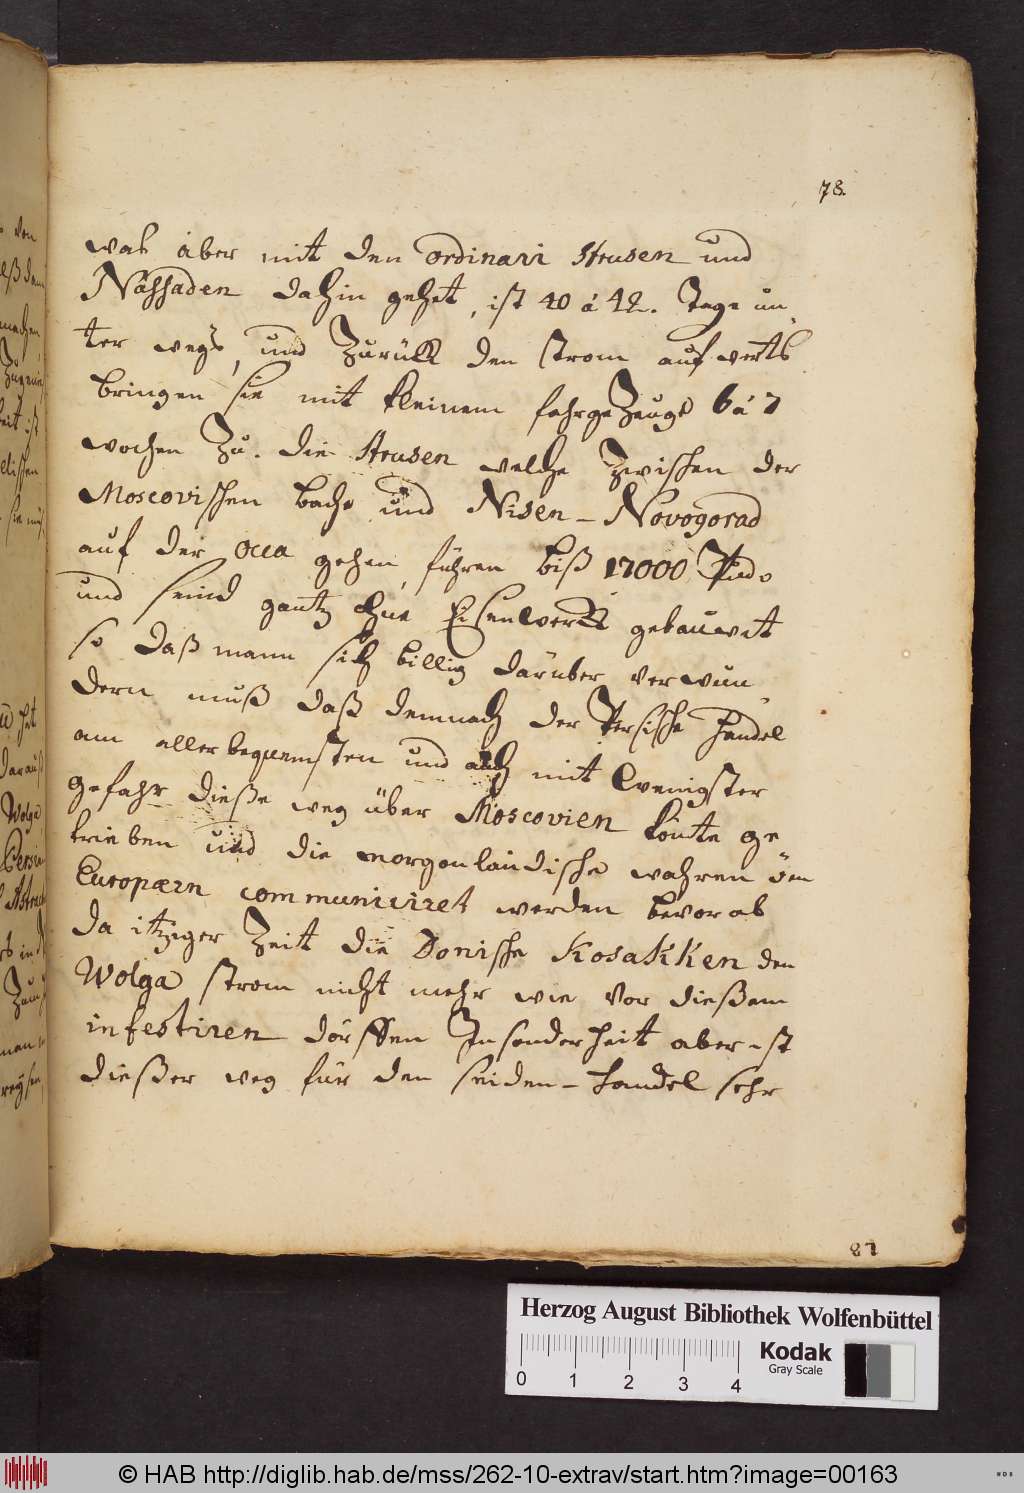 78.
was aber mit den ordinari Strusen und
Nassaden dahin gehet, ist 40 á 42. Tage un
ter wegs, und Zurükk den strom aufwerts
bringen sie mit kleinem fahrgeZeuge 6 á 7
wochen Zu. die Strusen welche Zwischen der
Moscovischen bache und Nisen-Novogorad
auf der Occa gehen, führen biß 17000 Pud.
und seind gantz ohne Eisenwerkk gebauwet
so daß mann sich billig darüber verwun
dern muß daß demnach der Persische handel
am allerbequemsten und auch mit wenigster
gefahr dieße weg über Moscovien könte ge
trieben und die morgenländische wahren den
Europæern communiciret werden bevorab
da itziger Zeit die Donische Kosakken den
Wolga strom nicht mehr wie vor dießem
infestiren dörffen Insonderheit aber ist
dießer weg für den seiden-handel sehr
87
Herzog August Bibliothek Wolfenbüttel
0 1 2 3 4
Kodak
Gray Scale
© HAB http://diglib.hab.de/mss/262-10-extrav/start.htm?image=00163